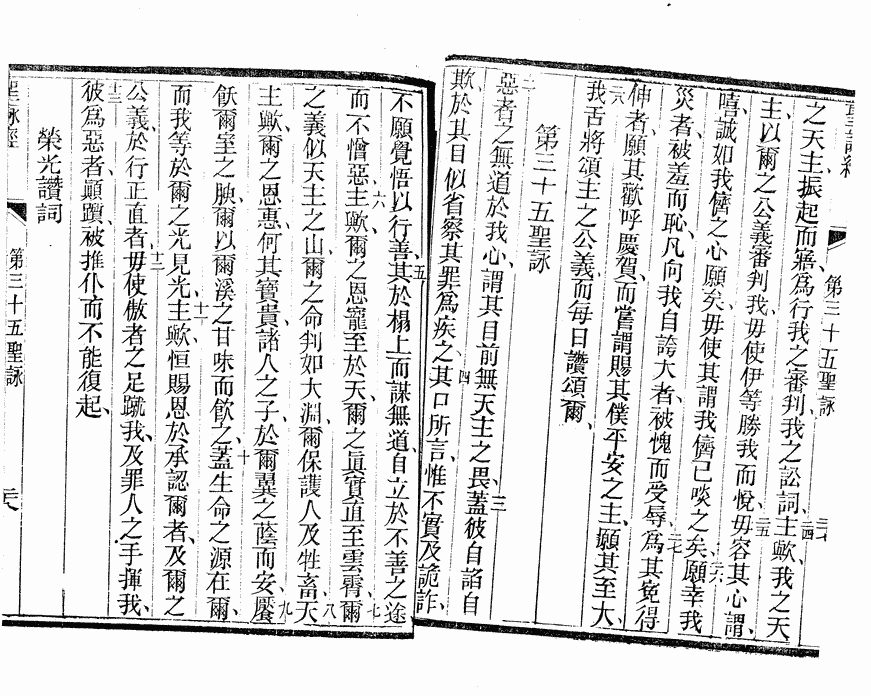 聖詠經
第三十五聖詠
之天主振起而寤、爲行我之審判我之訟詞、二四主歟、我之天
主、以爾之公義審判我、毋使伊等勝我而悅、二五毋容其心謂、
嘻、誠如我儕之心願矣、毋使其謂我儕已啖之矣、二六願幸我
災者被羞而恥、凡向我自誇大者、被愧而受辱、二七爲其冤得
伸者、願其歡呼慶賀、而嘗謂賜其僕平安之主、願其至大、
二八我舌將頌主之公義、而每日讚頌爾、
第三十五聖詠
二惡者之無道於我心、謂其目前無天主之畏、三蓋彼自諂自
欺於其目、似省察其罪爲疾之、四其口所言、惟不實及詭詐、
不願覺悟以行善、五其於榻上而謀無道、自立於不善之途
而不憎惡、六主歟、爾之恩寵至於天、爾之眞實直至雲霄、七爾
之義似天主之山、爾之命判如大淵、爾保護人及牲畜、八天
主歟、爾之恩惠、何其寶貴、諸人之子於爾翼之蔭而安、九饜
飫爾室之腴、爾以爾溪之甘味而飲之、十蓋生命之源在爾、
而我等於爾之光見光、十一主歟、恒賜恩於承認爾者、及爾之
公義、於行正直者、十二毋使傲者之足蹴我、及罪人之手揮我、
十三彼爲惡者、顚躓、被推仆而不能復起、
榮光讚詞
聖詠經
第三十五聖詠